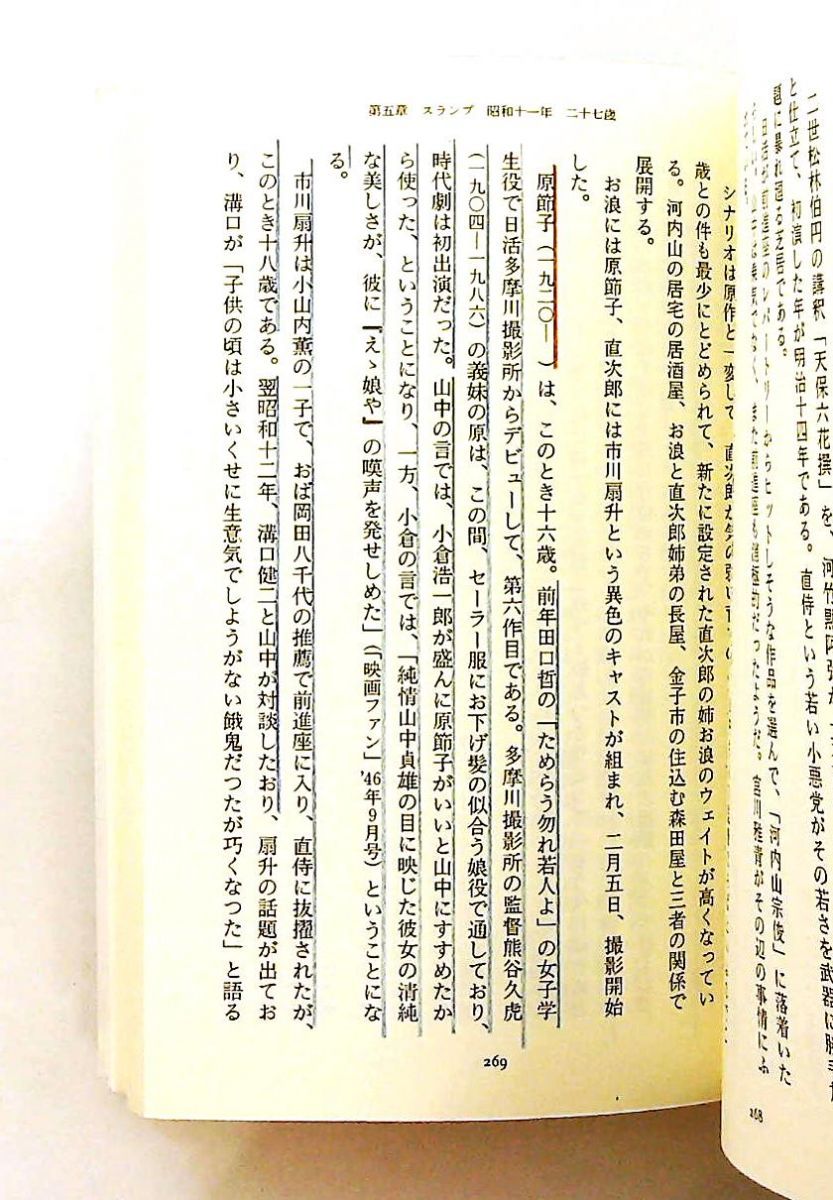 二世松林伯円の講釈「天保六花撰」を、河竹黙阿弥が
と仕立て、初演した年が明治十四年である。直侍という若い小悪党がその若さを武器に勝手
題に暴れ廻る芝居である。
日活が前進座のレパートリーからヒットしそうな作品を選んで、「河内山宗俊」に落着いた
また前進座も積極的だったようだ。宮川雅青がその辺の事情にふ
268
第五章 スランプ 昭和十一年 二十七歳
シナリオは原作と一変して、直次郎が気の弱い
歳との件も最少にとどめられて、新たに設定された直次郎の姉お浪のウェイトが高くなってい
る。河内山の居宅の居酒屋、お浪と直次郎姉弟の長屋、金子市の住込む森田屋と三者の関係で
展開する。
お浪には原節子、直次郎には市川扇升という異色のキャストが組まれ、二月五日、撮影開始
した。
原節子(一九二〇― )は、このとき十六歳。前年田口哲の「ためらう勿れ若人よ」の女子学
生役で日活多摩川撮影所からデビューして、第六作目である。多摩川撮影所の監督熊谷久虎
(一九〇四―一九八六)の義妹の原は、この間、セーラー服にお下げ髪の似合う娘役で通しており、
時代劇は初出演だった。山中の言では、小倉浩一郎が盛んに原節子がいいと山中にすすめたか
ら使った、ということになり、一方、小倉の言では、「純情山中貞雄の目に映じた彼女の清純
な美しさが、彼に『えゝ娘や』の嘆声を発せしめた」(「映画ファン」'46年9月号)ということにな
る。
市川扇升は小山内薫の一子で、おば岡田八千代の推薦で前進座に入り、直侍に抜擢されたが、
このとき十八歳である。翌昭和十二年、溝口健二と山中が対談したおり、扇升の話題が出てお
り、溝口が「子供の頃は小さいくせに生意気でしようがない餓鬼だつたが巧くなつた」と語る
269